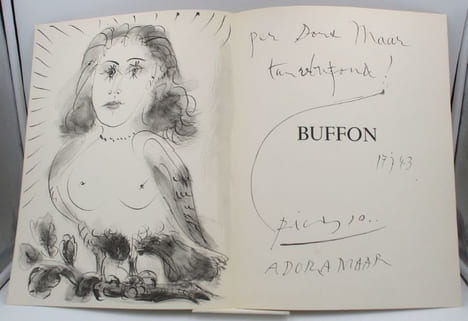 per Dora Maar
tan rebufond!
BUFFON
17 J 43
Picasso..
A DORA MAAR